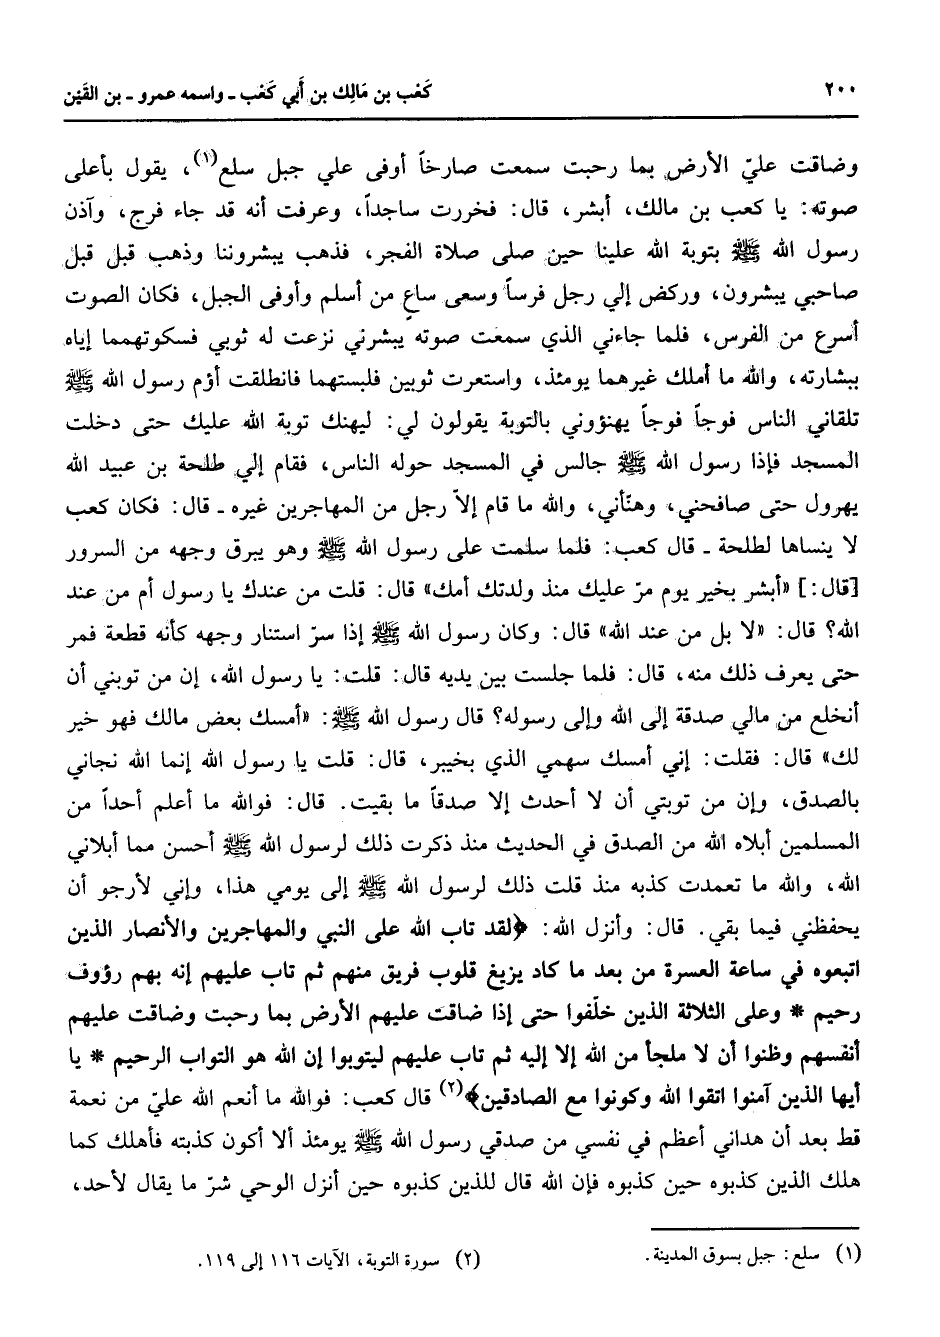 ٢٠٠
كَعْب بن مَالِك بن أَبي كَعْب ـ واسمه عمرو ـ بن القَيْن
وضاقت عليّ الأرض بما رحبت سمعت صارخاً أوفى علي جبل سلع(١)، يقول بأعلى
صوته: يا كعب بن مالك، أبشر، قال: فخررت ساجداً، وعرفت أنه قد جاء فرج، وآذن
رسول الله ﷺ بتوبة الله علينا حين صلى صلاة الفجر، فذهب يبشروننا وذهب قبل قبل
صاحبي يبشرون، وركض إلي رجل فرساً وسعى ساعٍ من أسلم وأوفى الجبل، فكان الصوت
أسرع من الفرس، فلما جاءني الذي سمعت صوته يبشرني نزعت له ثوبي فسكوتهمما إياه
ببشارته، والله ما أملك غيرهما يومئذ، واستعرت ثوبين فلبستهما فانطلقت أؤم رسول الله ﷺ
تلقاني الناس فوجاً فوجاً يهنؤوني بالتوبة يقولون لي: ليهنك توبة الله عليك حتى دخلت
المسجد فإذا رسول الله ﷺ جالس في المسجد حوله الناس، فقام إلي طلحة بن عبيد الله
يهرول حتى صافحني، وهنّأني، والله ما قام إلاّ رجل من المهاجرين غيره ـ قال: فكان كعب
لا ينساها لطلحة ـ قال كعب: فلما سلمت على رسول الله ﷺ وهو يبرق وجهه من السرور
[قال:] «أبشر بخير يوم مرّ عليك منذ ولدتك أمك» قال: قلت من عندك يا رسول أم من عند
الله؟ قال: «لا بل من عند الله» قال: وكان رسول الله ﷺ إذا سرّ استنار وجهه كأنه قطعة فمر
حتى يعرف ذلك منه، قال: فلما جلست بين يديه قال: قلت: يا رسول الله، إن من توبني أن
أنخلع من مالي صدقة إلى الله وإلى رسوله؟ قال رسول الله ﷺ: «أمسك بعض مالك فهو خير
لك» قال: فقلت: إني أمسك سهمي الذي بخيبر، قال: قلت يا رسول الله إنما الله نجاني
بالصدق، وإن من توبتي أن لا أحدث إلا صدقاً ما بقيت. قال: فوالله ما أعلم أحداً من
المسلمين أبلاه الله من الصدق في الحديث منذ ذكرت ذلك لرسول الله ﷺ أحسن مما أبلاني
الله، والله ما تعمدت كذبه منذ قلت ذلك لرسول الله ﷺ إلى يومي هذا، وإني لأرجو أن
يحفظني فيما بقي. قال: وأنزل الله: ﴿لقد تاب الله على النبي والمهاجرين والأنصار الذين
اتبعوه في ساعة العسرة من بعد ما كاد يزيغ قلوب فريق منهم ثم تاب عليهم إنه بهم رؤوف
رحيم * وعلى الثلاثة الذين خلّفوا حتى إذا ضاقت عليهم الأرض بما رحبت وضاقت عليهم
أنفسهم وظنوا أن لا ملجأ من الله إلا إليه ثم تاب عليهم ليتوبوا إن الله هو التواب الرحيم * يا
أيها الذين آمنوا اتقوا الله وكونوا مع الصادقين﴾(٢) قال كعب: فوالله ما أنعم الله عليّ من نعمة
قط بعد أن هداني أعظم في نفسي من صدقي رسول الله ﷺ يومئذ ألا أكون كذبته فأهلك كما
هلك الذين كذبوه حين كذبوه فإن الله قال للذين كذبوه حين أنزل الوحي شرّ ما يقال لأحد،
(١) سلع: جبل بسوق المدينة.
(٢) سورة التوبة، الآيات ١١٦ إلى ١١٩.